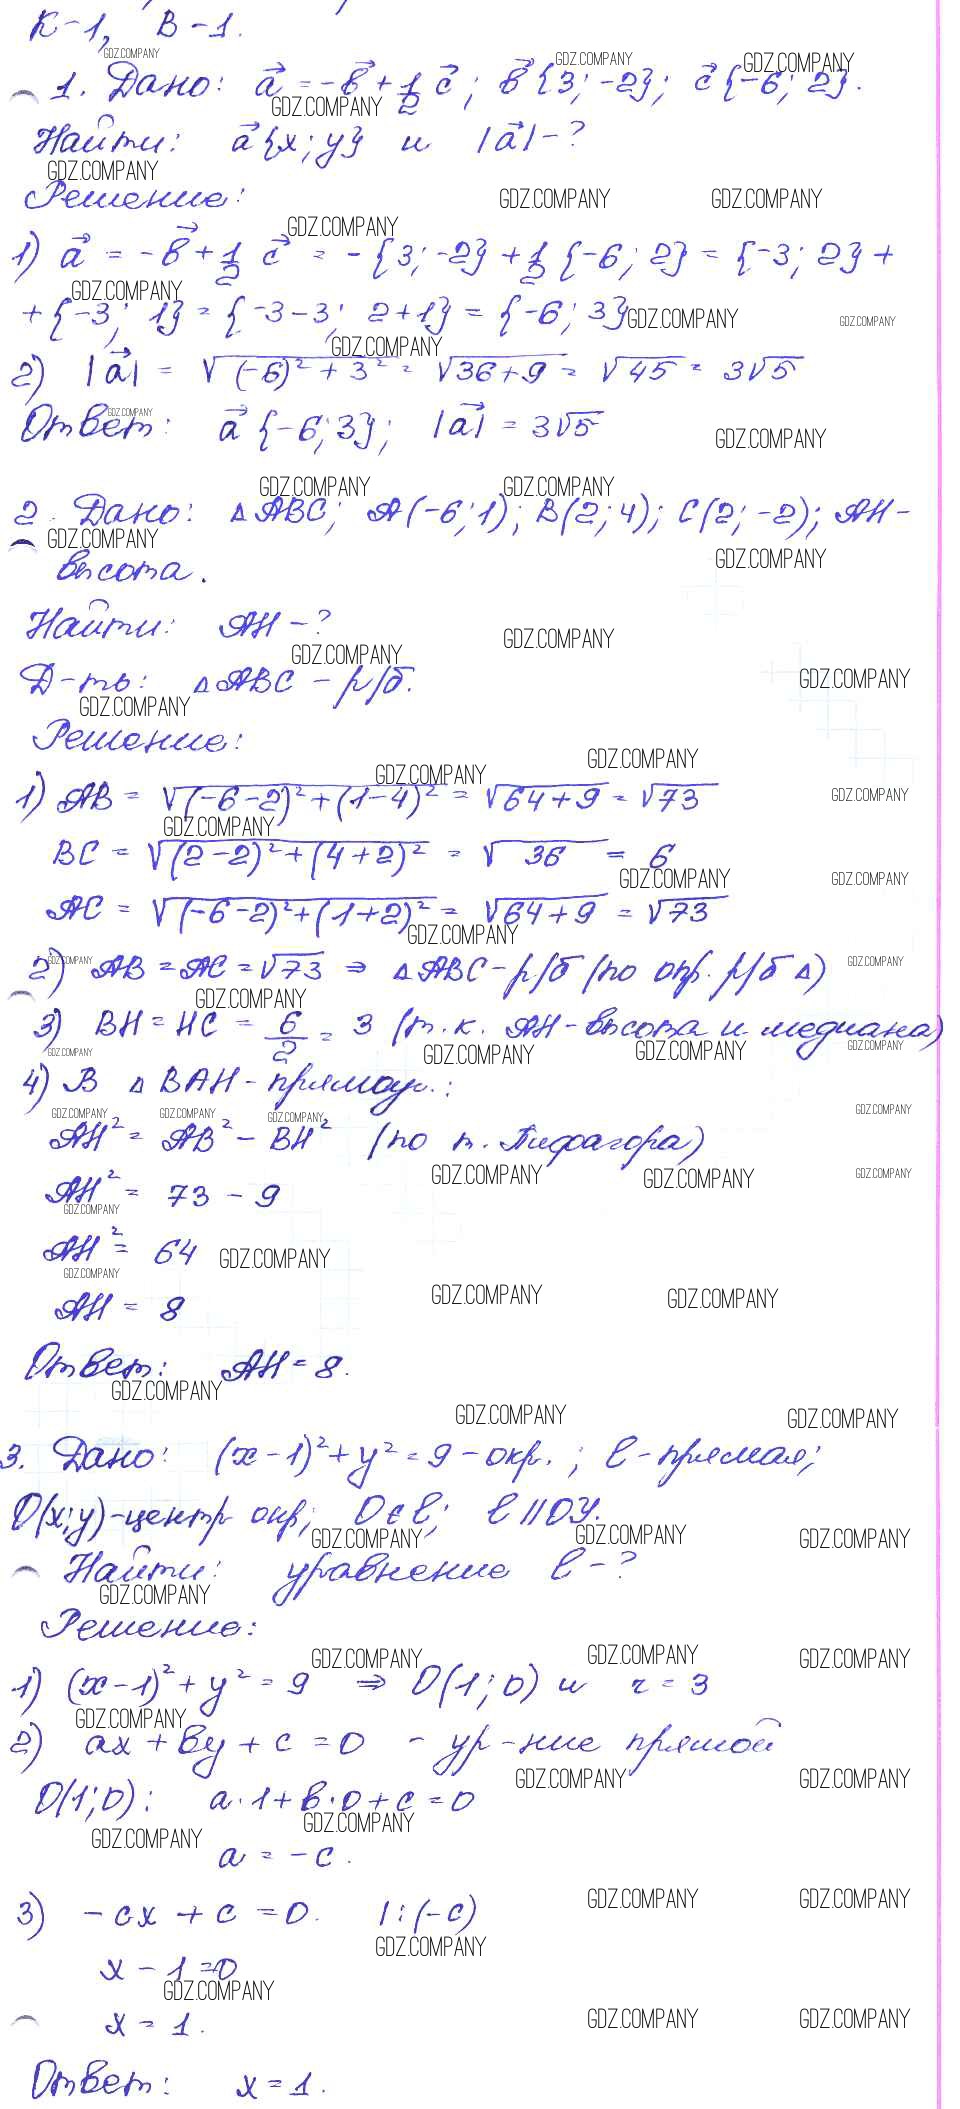 К-1, В-1.
1. Дано: a⃗ = -b⃗ + 1/2 c⃗; b⃗{3; -2}; c⃗{-6; 2}.
Найти: a⃗{x; y} и |a⃗| - ?
Решение:
1) a⃗ = -b⃗ + 1/2 c⃗ = -{3; -2} + 1/2 {-6; 2} = {-3; 2} +
+ {-3; 1} = {-3-3; 2+1} = {-6; 3}
2) |a⃗| = √((-6)² + 3²) = √(36+9) = √45 = 3√5
Ответ: a⃗ {-6; 3}; |a⃗| = 3√5
2. Дано: ΔABC; A(-6; 1); B(2; 4); C(2; -2); AH -
высота.
Найти: AH - ?
Д-ть: ΔABC - р/б.
Решение:
1) AB = √((-6-2)² + (1-4)²) = √(64+9) = √73
BC = √((2-2)² + (4+2)²) = √36 = 6
AC = √((-6-2)² + (1+2)²) = √(64+9) = √73
2) AB = AC = √73 ⇒ ΔABC - р/б (по опр. р/б Δ)
3) BH = HC = 6/2 = 3 (т.к. AH - высота и медиана)
4) В ΔBAH - прямоуг.:
AH² = AB² - BH² (по т. Пифагора)
AH² = 73 - 9
AH² = 64
AH = 8
Ответ: AH = 8.
3. Дано: (x-1)² + y² = 9 - окр.; l - прямая;
O(x; y) - центр окр; O ∈ l; l || OY.
Найти: уравнение l - ?
Решение:
1) (x-1)² + y² = 9 ⇒ O(1; 0) и r = 3
2) ax + by + c = 0 - ур-ние прямой
O(1; 0): a·1 + b·0 + c = 0
a = -c.
3) -cx + c = 0. |:(-c)
x - 1 = 0
x = 1.
Ответ: x = 1.
GDZ.COMPANY